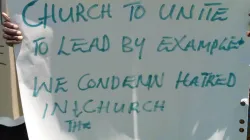 CHURCH TO UNITE
TO LEAD BY EXAMPLE
WE CONDEMN HATRED
IN CHURCH
THE